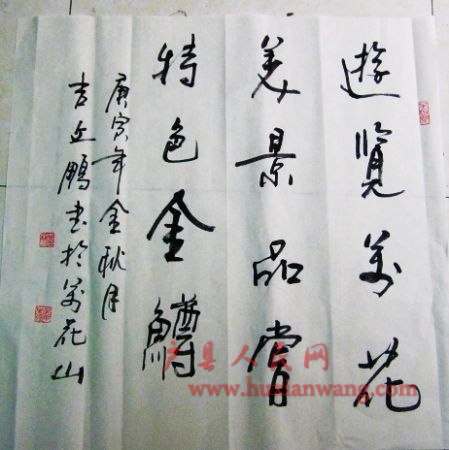 遊覽萬花
美景品嘗
特色金鱒
庚寅年金秋月
吉丘鵬书於萬花山
户县人民网
www.huxianwang.com